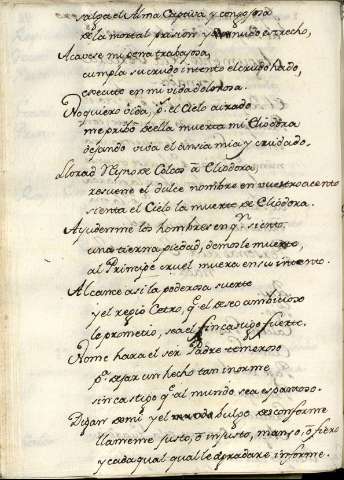 salga el Alma Captiva y congojosa
de la mortal prision y nudo estrecho,
Acavese mi pena trabajosa,
cumpla su crudo intento el crudo hado,
execute en mi vida dolorosa.
No quiero vida, pª. el Cielo airado
me pribò de ella muerta mi Cliodora
dejando viva el ansia mia y cuidado,
Llorad Ninfos de Colcos à Cliodora,
resuene el dulce nombre en vuestro acento
sienta el Cielo la muerte de Cliodora.
Ayudenme los hombres en qn. siento
una tierna piedad, demosle muerte,
al Principe cruel muera en su intento.
Alcance asi la poderosa suerte
y el regio Cetro, qe. el deseo ambicioso
le prometio, sea el fin castigo fuerte.
No me hara el ser Padre temeroso
pª. dejar un hecho tan inorme
sin castigo qe. al mundo sea espantoso.
Digan de mi y el vulgo desconforme
llameme justo, ò injusto, manso, ò fiero
y cada qual qual le agradare informe.